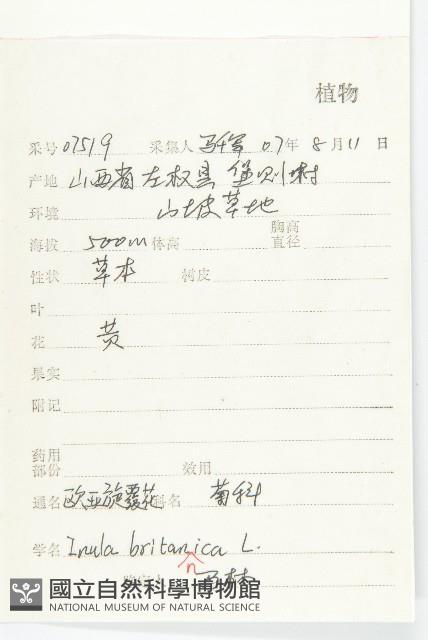 植物
采号 07519 采集人 马 07年 8月11日
产地 山西省左权县堡则村
环境 山坡草地
胸高
海拔 500m 体高 直径
性状 草本 树皮
叶
花 黄
果实
附记
药用
部份 效用
通名 欧亚旋覆花 科名 菊科
学名 Inula britanica L.
n
國立自然科學博物館
NATIONAL MUSEUM OF NATURAL SCIENCE